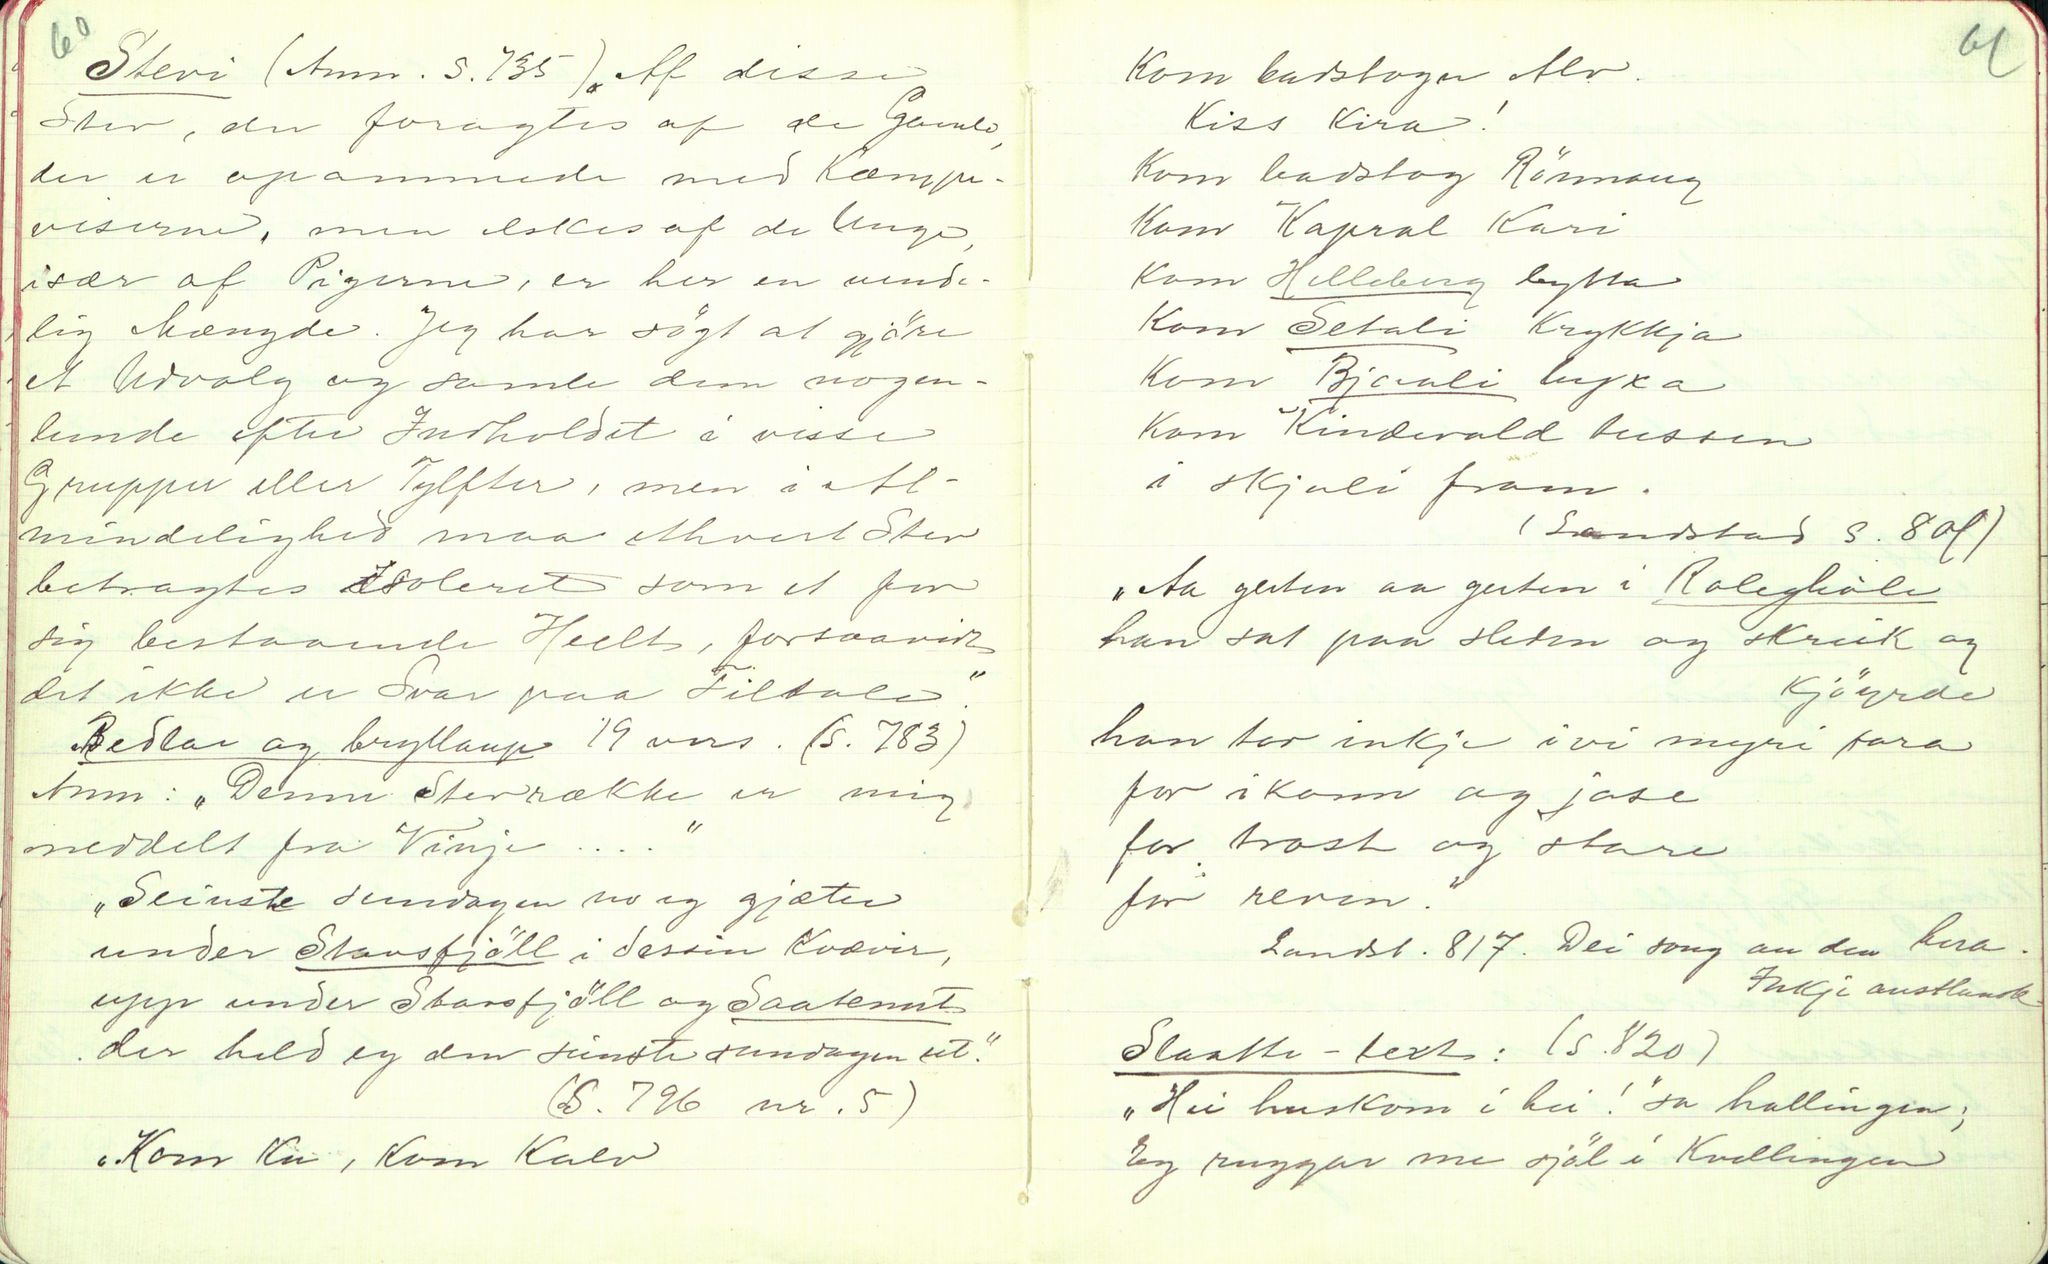 60
Stevi (Anm. S. 735) „Af disse
Stev, der foragtes af de Gamle,
der er opammede med Kæmpe-
viserne, men elskes af de Unge,
især af Pigerne, er her en uende-
lig Mængde. Jeg har søgt at gjöre
et Udvalg og samle dem nogen-
lunde efter Indholdet i visse
Grupper eller Tylfter, men i Al-
mindelighed maa ethvert Stev
betragtes isoleret som et for
sig bestaaende Heelt, forsaavidt
det ikke er Svar paa Tiltale."
Bedlar og bryllaup 19 vers. (S. 783)
Anm: „Denne Stevrække er mig
meddelt fra Vinje ...."
„Seinste sundagen no eg gjæter
under Stavsfjöll i dessin Kvævir,
upp under Stavsfjöll og Saatenut
der held eg den seinste sundagen ut."
(S. 796 nr. 5)
„Kom Ku, Kom Kalv
61
Kom badstoga Alv.
Kiss Kira!
Kom badstog Rönnaug
Kom Kapral Kari
Kom Helleberg bytta
Kom Setali Krykkja
Kom Bjaali buxa
Kom Kindevald tussen
i skjuli fram.
(Landstad S. 801)
„Aa guten aa guten i Roleghöle
han sat paa sleden og skreik og
kjöyrde
han tor inkje ivi myri fara
for ikonn og jase
for trast og stare
for reven."
Landst. 817. Dei song au den bera.
Inkje austlandsk.
Slaatte-text: (S. 820)
„Hei huskom i hei!" sa hallingen;
Eg ruggar me sjöl i Kvellingen